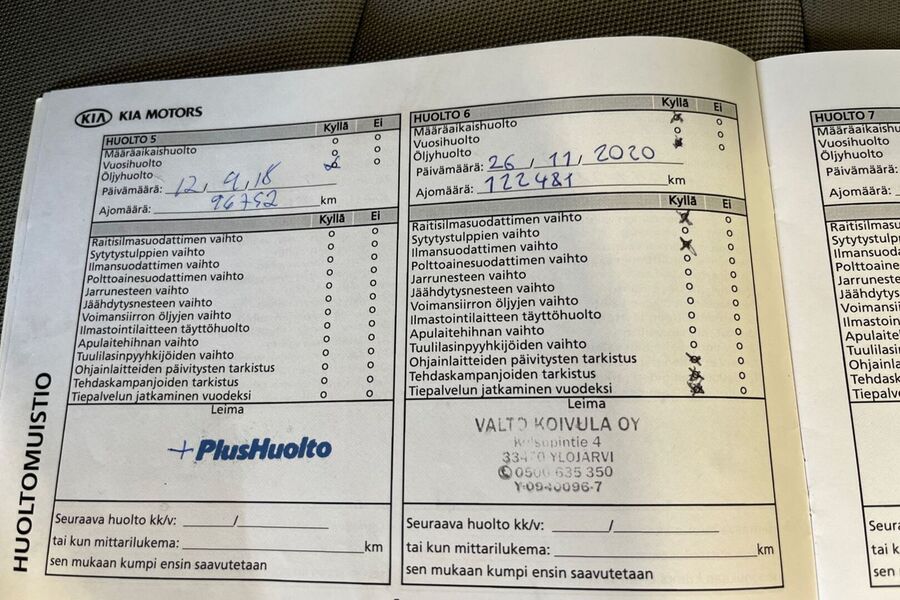 KIA KIA MOTORS
HUOLTO 5 Kyllä Ei
Määräaikaishuolto
Vuosihuolto
Öljyhuolto
Päivämäärä: 12, 9, 18
Ajomäärä: 96752 km
Kyllä Ei
Raitisilmasuodattimen vaihto
Sytytystulppien vaihto
Ilmansuodattimen vaihto
Polttoainesuodattimen vaihto
Jarrunesteen vaihto
Jäähdytysnesteen vaihto
Voimansiirron öljyjen vaihto
Ilmastointilaitteen täyttöhuolto
Apulaitehihnan vaihto
Tuulilasinpyyhkijöiden vaihto
Ohjainlaitteiden päivitysten tarkistus
Tehdaskampanjoiden tarkistus
Tiepalvelun jatkaminen vuodeksi
Leima
+PlusHuolto
Seuraava huolto kk/v: /
tai kun mittarilukema: km
sen mukaan kumpi ensin saavutetaan
HUOLTO 6 Kyllä Ei
Määräaikaishuolto
Vuosihuolto
Öljyhuolto
Päivämäärä: 26, 11, 2020
Ajomäärä: 122481 km
Kyllä Ei
Raitisilmasuodattimen vaihto
Sytytystulppien vaihto
Ilmansuodattimen vaihto
Polttoainesuodattimen vaihto
Jarrunesteen vaihto
Jäähdytysnesteen vaihto
Voimansiirron öljyjen vaihto
Ilmastointilaitteen täyttöhuolto
Apulaitehihnan vaihto
Tuulilasinpyyhkijöiden vaihto
Ohjainlaitteiden päivitysten tarkistus
Tehdaskampanjoiden tarkistus
Tiepalvelun jatkaminen vuodeksi
Leima
VALTO KOIVULA OY
4
33470 YLÖJÄRVI
0500 635 350
Y-0940096-7
Seuraava huolto kk/v: /
tai kun mittarilukema: km
sen mukaan kumpi ensin saavutetaan
HUOLTOMUISTIO
HUOLTO 7
Määräaikaishu
Vuosihuolto
Öljyhuolto
Päivämäärä:
Ajomäärä:
Raitisilmasu
Sytytystulpp
Ilmansuodat
Polttoaines
Jarruneste
Jäähdytysn
Voimansiirr
Ilmastointi
Apulaitehi
Tuulilasinp
Ohjainlait
Tehdaska
Tiepalvelu
Seura
tai k
sen